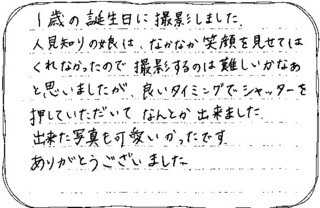 1歳の誕生日に撮影しました.
人見知りの娘は、なかなか笑顔を見せては
くれなかったので 撮影するのは難しいかなぁ
と思いましたが、良いタイミングでシャッターを
押していただいて なんとか 出来ました.
出来た写真も可愛いかったです.
ありがとうございました.